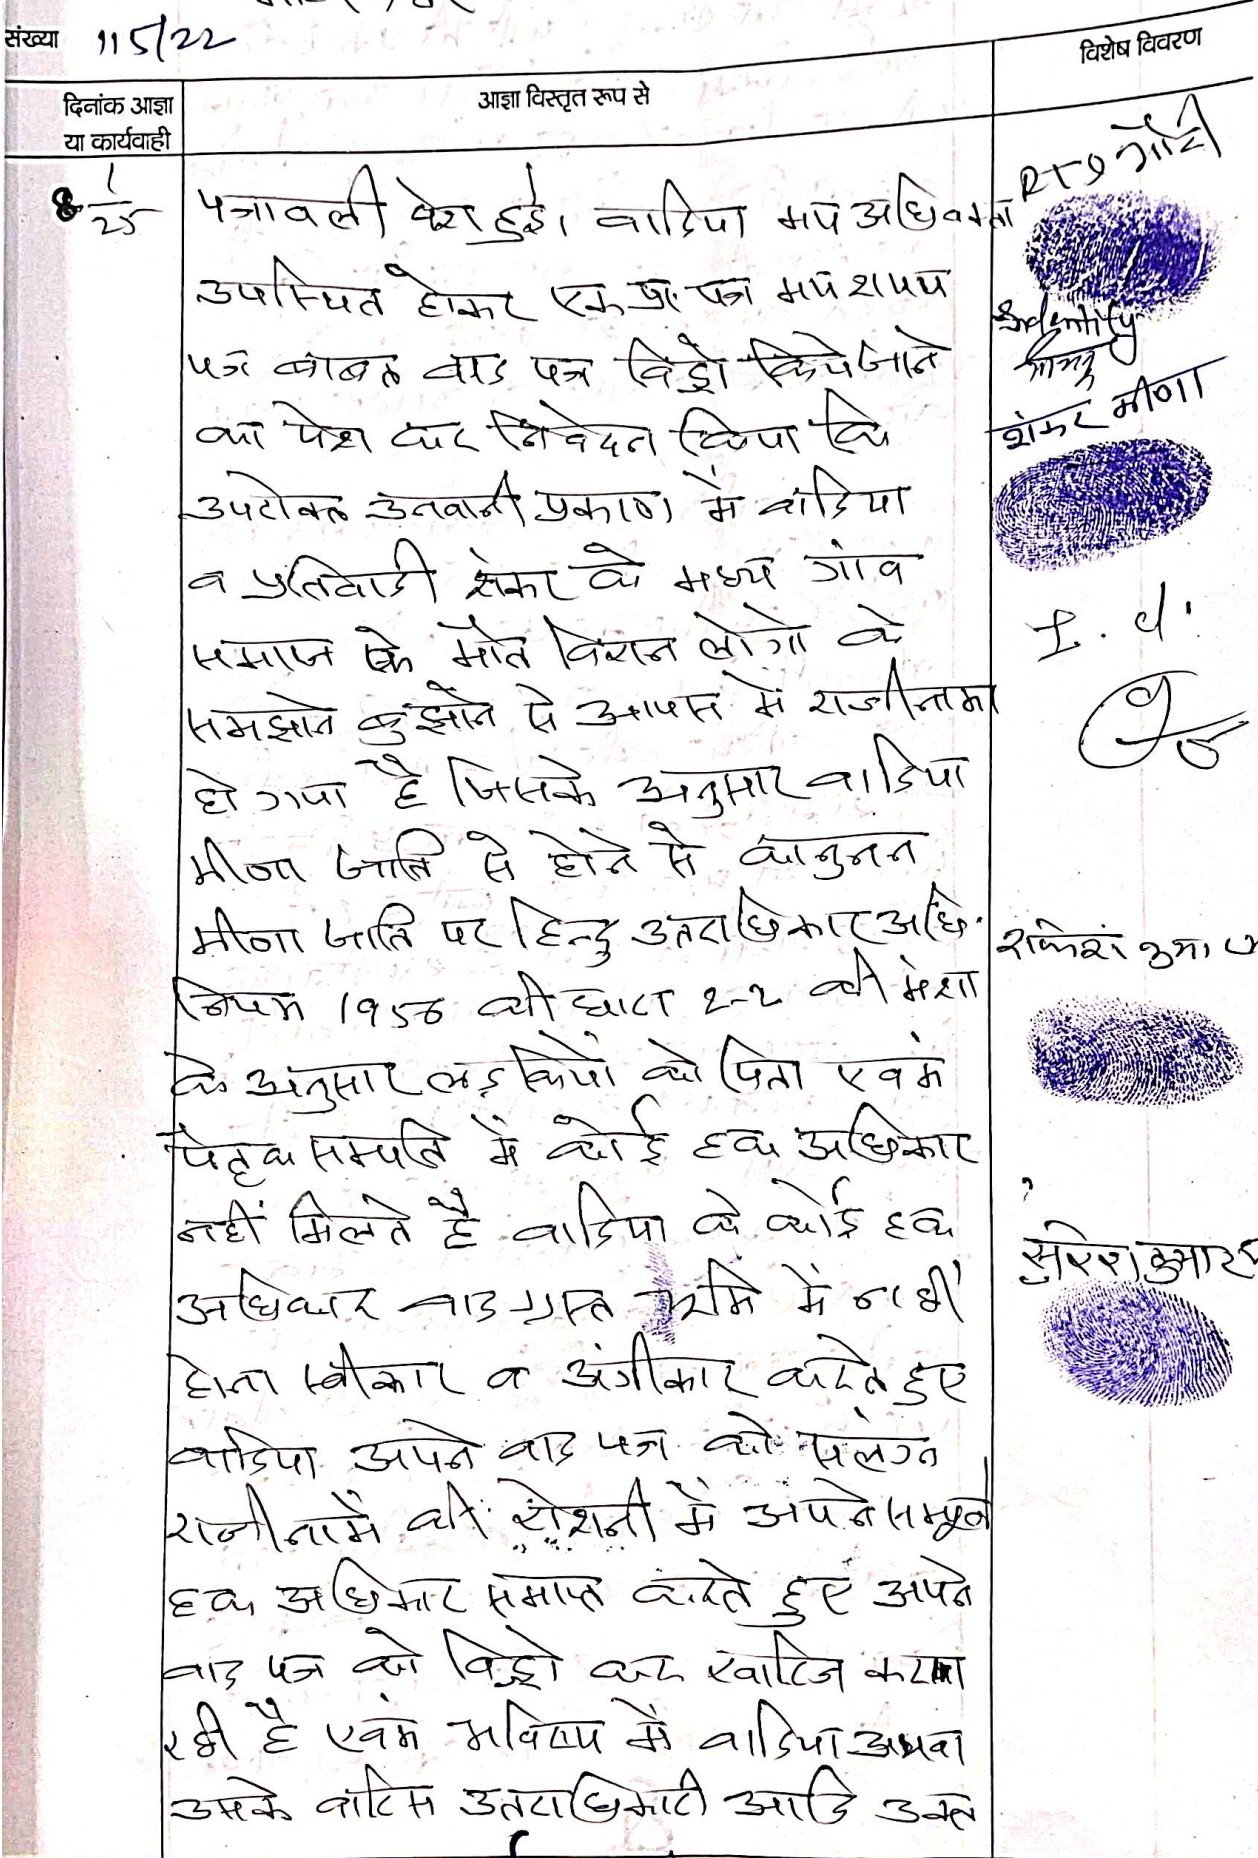 संख्या 115/22
विशेष विवरण
दिनांक आज्ञा
या कार्यवाही
आज्ञा विस्तृत रूप से
8/1/25
पत्रावली पेश हुई। वादिया मय अधिवक्ता
उपस्थित होकर एक प्रा. पत्र मय शपथ
पत्र बाबत वाद पत्र विड्रो किये जाने
का पेश कर निवेदन किया कि
उपरोक्त उनवानी प्रकरण में वादिया
व प्रतिवादी शंकर के मध्य गांव
समाज के मौत विरान लोगो के
समझाने बुझाने से आपस में राजीनामा
हो गया है जिसके अनुसार वादिया
मीणा जाति से होने से कानुनन
मीणा जाति पर हिन्दु उतराधिकार अधि.
नियम 1956 की धारा 2-2 की मंशा
के अनुसार लड़कियों को पिता एवंम
पैतृक सम्पति में कोई हक अधिकार
नहीं मिलते है वादिया के कोई हक
अधिकार वादग्रस्त भूमि में नही
होना स्वीकार व अंगीकार करते हुए
वादिया अपने वाद पत्र को सलंग्न
राजीनामें की रोशनी में अपने सम्पूर्ण
हक अधिकार समाप्त करते हुए अपने
वाद पत्र को विड्रो कर खारिज करवा
रही है एवंम भविष्य में वादिया अथवा
उसके वारिस उतराधिकारी आदि उक्त
RTI गौरी
Identify
शंकर मीणा
I. d.
राकेश कुमार
सुरेश कुमार